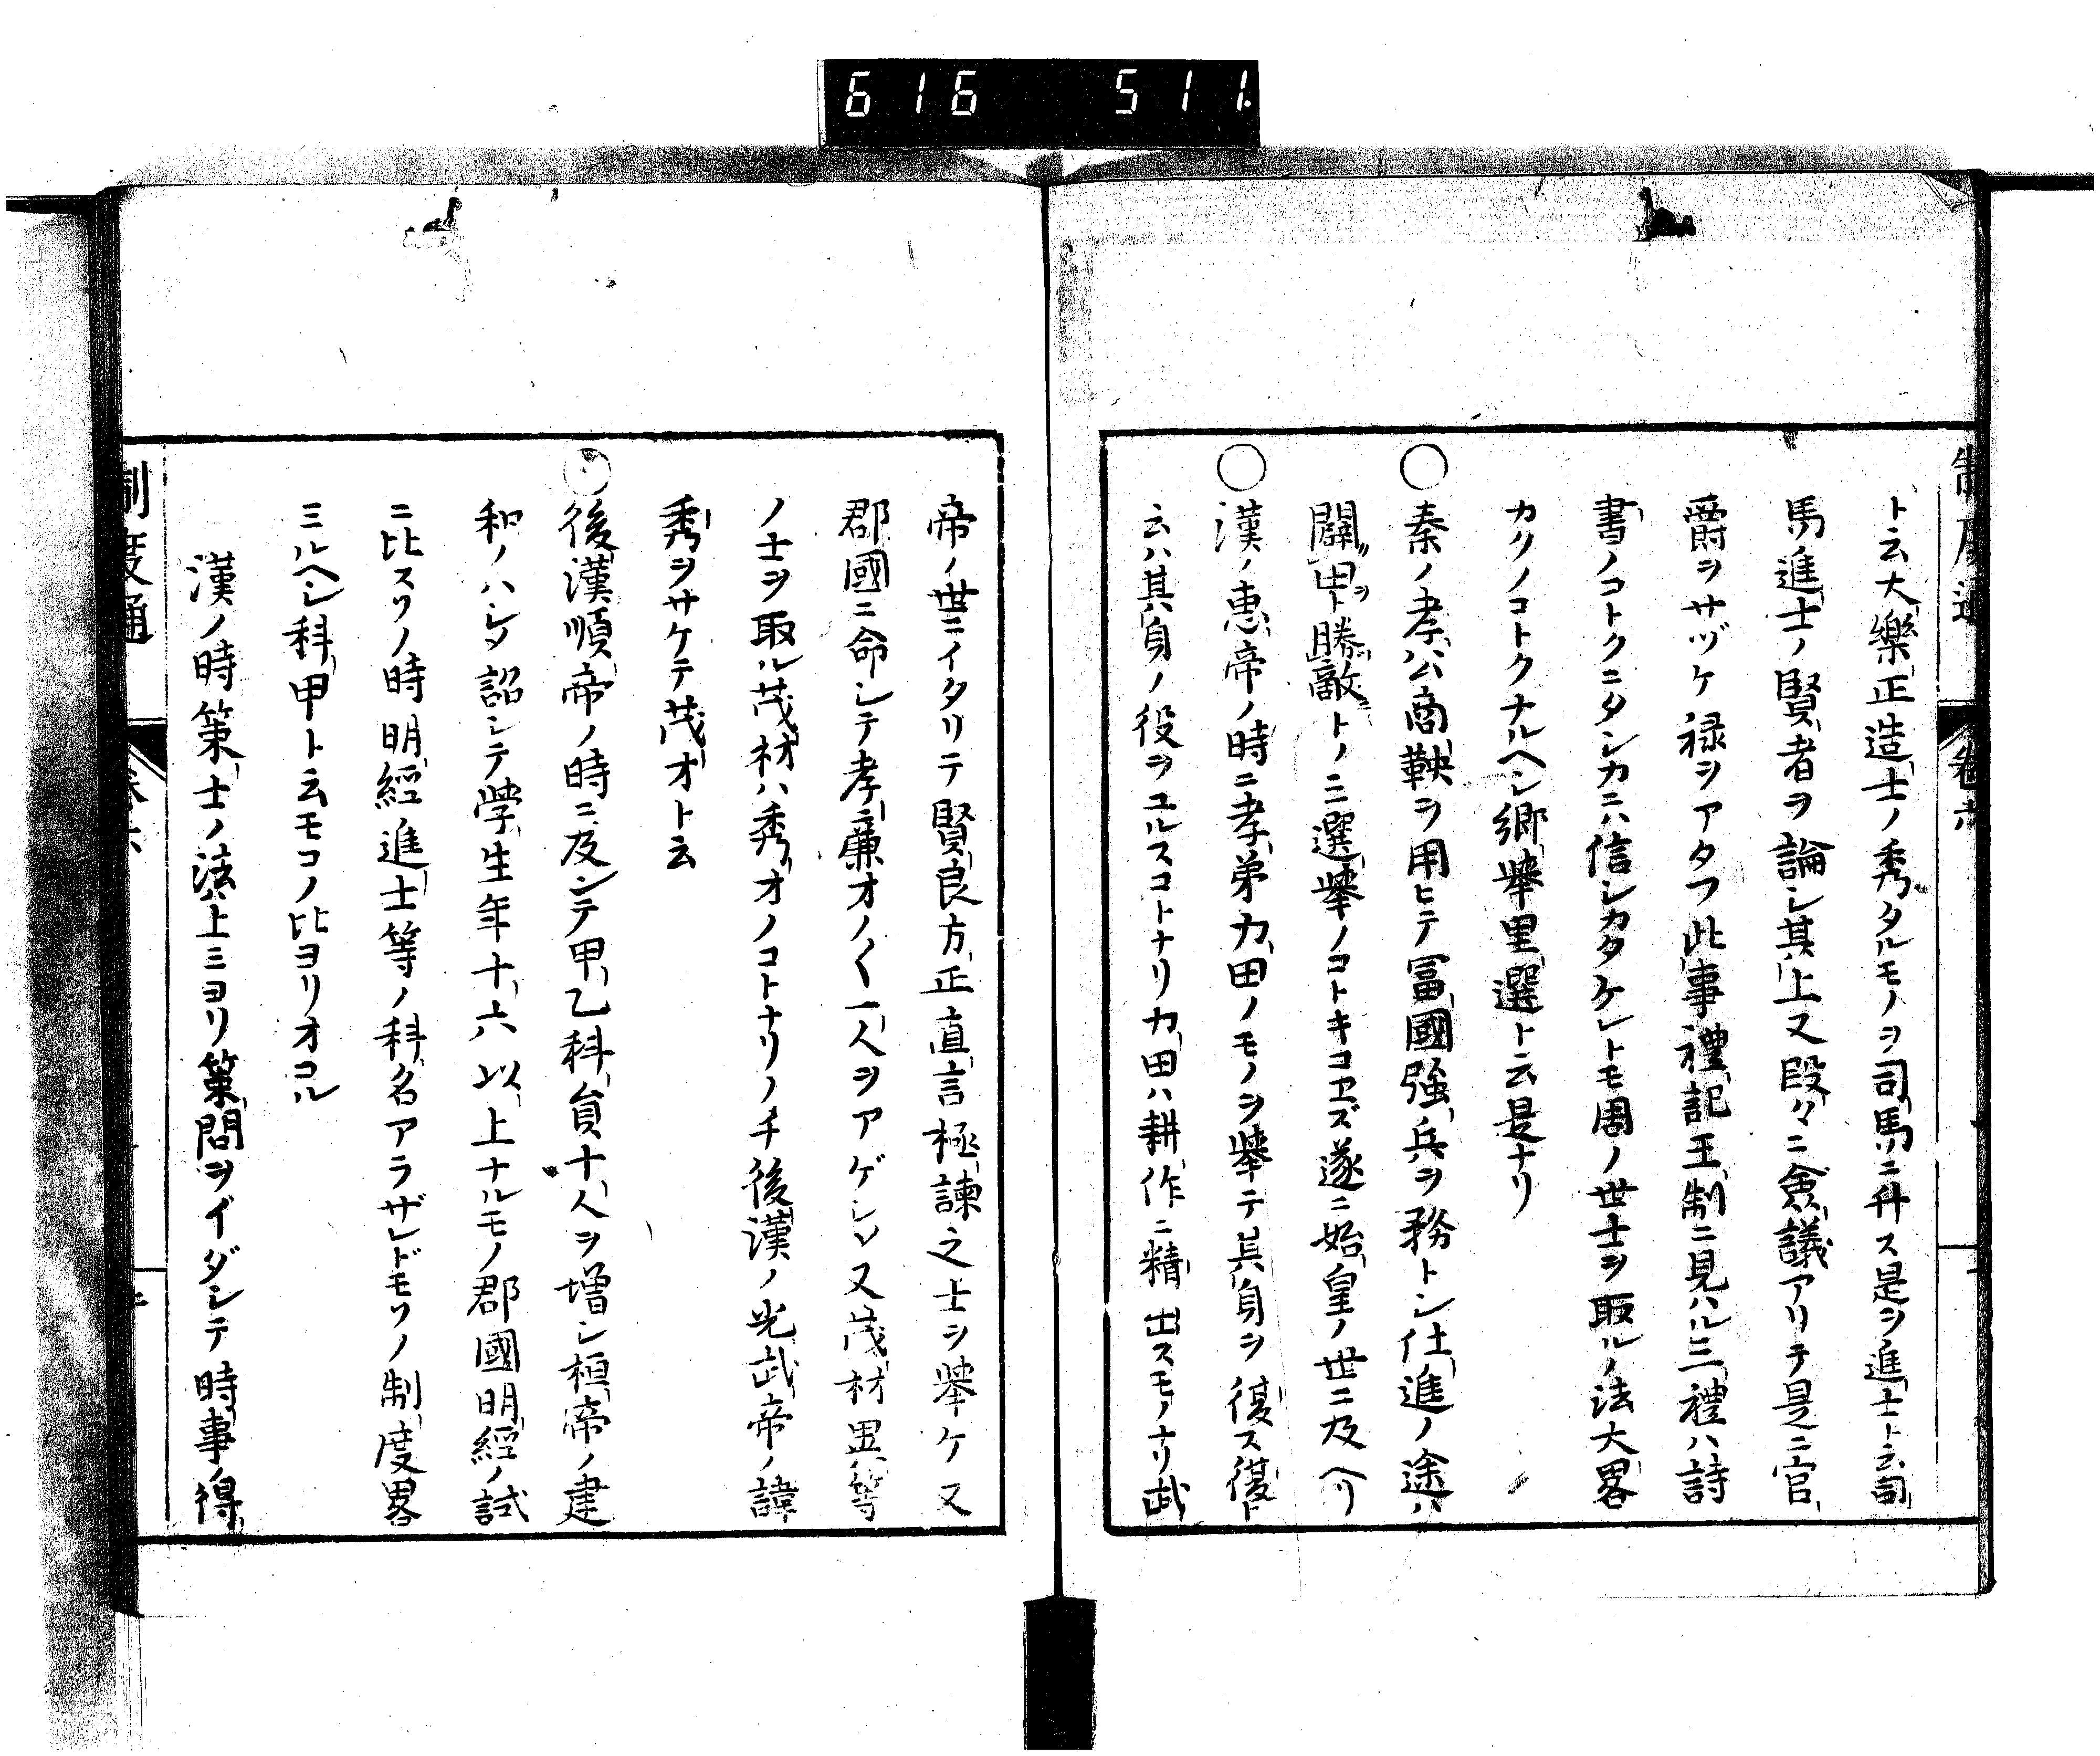 616 511
制度通 卷六
ト云大樂正造士ノ秀タルモノヲ司馬ニ升ス是ヲ進士ト云司
馬進士ノ賢者ヲ論シ其上又段々ニ僉議アリテ是ニ官
爵ヲサヅケ禄ヲアタフ此事禮記王制ニ見ハル三禮ハ詩
書ノコトクニタシカニハ信シカタケレトモ周ノ世士ヲ取ルノ法大畧
カクノコトクナルヘシ郷擧里選ト云是ナリ
○秦ノ孝公商鞅ヲ用ヒテ冨國強兵ヲ務トシ仕進ノ途ハ
闢田ヲト勝敵トノミ選擧ノコトキコヱズ遂ニ始皇ノ世ニ及ヘリ
○漢ノ惠帝ノ時ニ孝弟力田ノモノヲ擧テ其身ヲ復ス復ト
云ハ其身ノ役ヲユルスコトナリ力田ハ耕作ニ精出スモノナリ武
帝ノ世ニイタリテ賢良方正直言極諫之士ヲ擧ケ又
郡國ニ命シテ孝廉オノ〱一人ヲアゲシム又茂材異等
ノ士ヲ取ル茂材ハ秀才ノコトナリノチ後漢ノ光武帝ノ諱
秀ヲサケテ茂才ト云
○後漢順帝ノ時ニ及ンテ甲乙科員十人ヲ増シ桓帝ノ建
和ノハシメ詔シテ學生年十六以上ナルモノ郡國明經ノ試
ニ比スソノ時明經進士等ノ科名アラザレドモソノ制度畧
ミルヘシ科甲ト云モコノ比ヨリオコル
漢ノ時策士ノ法上ミヨリ策問ヲイダシテ時事ノ得
制度通 卷六